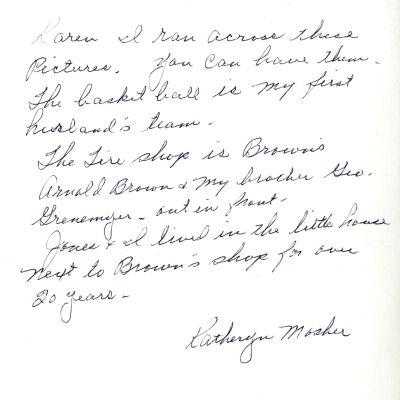 Karen I ran across these
Pictures. You can have them.
The basket ball is my first
husband's team.
The Tire shop is Brown's
Arnold Brown & my brother Geo.
Grenemyer - out in front.
Jones & I lived in the little house
next to Brown's shop for over
20 years -
Katheryn Mosher